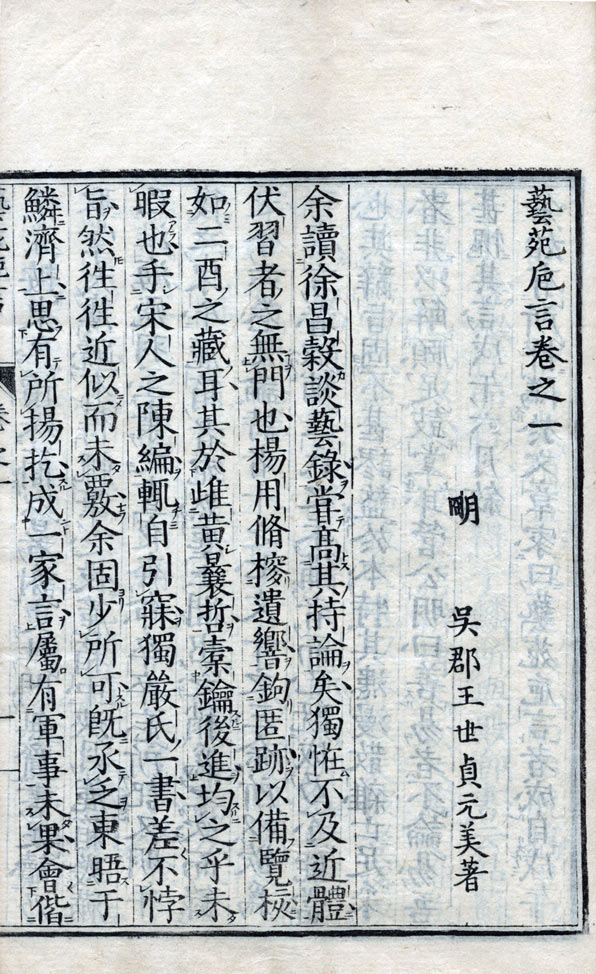 藝苑巵言卷之一
明 吳郡王世貞元美著
余讀徐昌穀談藝錄甞高其持論矣獨恠不及近體
伏習者之無門也楊用脩搜遺響鉤匿跡以備覽核
如二酉之藏耳其於雌黃曩哲橐鑰後進均之乎未
暇也手宋人之陳編輒自引寐獨嚴氏一書差不悖
旨然徃徃近似而未覈余固少所可旣承乏東晤于
鱗濟上思有所揚扢成一家言屬有軍事未果會偕